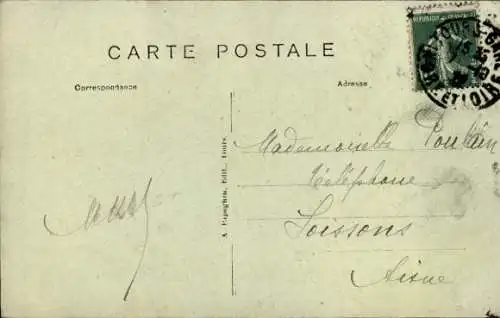 REPUBLIQUE FRANÇAISE
TOURS
ET LOIRE
CARTE POSTALE
Correspondance
Adresse
Mademoiselle Poulain
Téléphone
Soissons
Aisne
A. Papeghin, Edit., Tours.